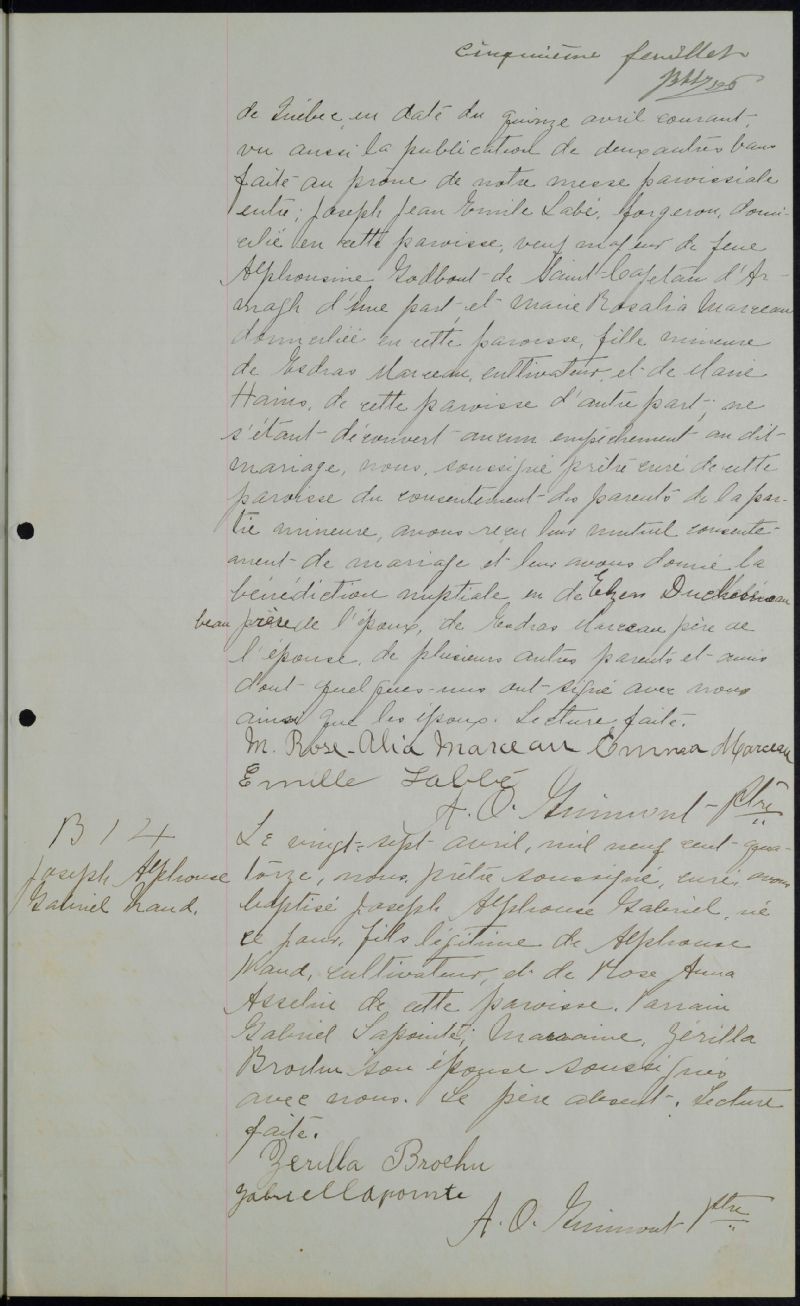 Cinquième feuillet
de Québec en date du quinze avril courant,
vu aussi la publication de deux autres bans
faite au prône de notre messe paroissiale
entre; Joseph Jean Emile Labé, forgeron, domi-
cilié en cette paroisse, veuf majeur de feue
Alphonsine Godbout de Saint-Cajetan d'Ar-
magh d'une part, et Marie Rosalia Marceau
domiciliée en cette paroisse, fille mineure
de Esdras Marceau, cultivateur, et de Marie
Hains, de cette paroisse d'autre part; ne
s'étant découvert aucun empêchement au dit
mariage, nous, soussigné prêtre curé de cette
paroisse du consentement des parents de la par-
tie mineure, avons reçu leur mutuel consente-
ment de mariage et leur avons donné la
bénédiction nuptiale en de Elzéar Duchesneau
beau père de l'époux, de Esdras Marceau père de
l'épouse, de plusieurs autres parents et amis
dont quelques-uns ont signé avec nous
ainsi que les époux. Lecture faite.
M. Rose-Alia Marceau Emma Marceau
Emille Labbé
A. O. Guimont-Ptre
B 14
Joseph Alphonse
Gabriel
Le vingt-sept avril, mil neuf cent qua-
torze, nous, prêtre soussigné, curé, avons
baptisé Joseph Alphonse Gabriel, né
ce jour, fils légitime de Alphonse
cultivateur, et de Rose Anna
Asselin de cette paroisse. Parrain
Gabriel Lapointe; Marraine, Zérilla
Brochu son épouse soussignés
avec nous. Le père absent. Lecture
faite.
Zerilla Brochu
Gabriel Lapointe
A. O. Guimont Ptre